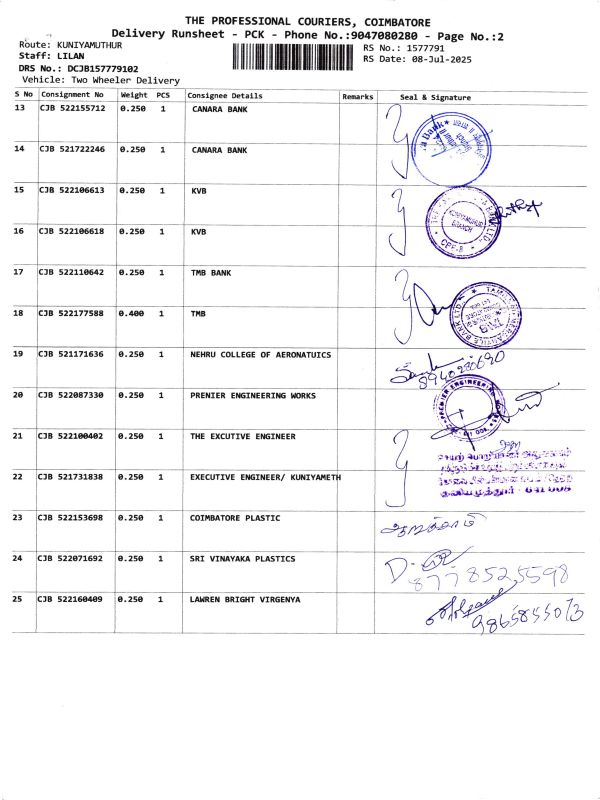 THE PROFESSIONAL COURIERS, COIMBATORE
Delivery Runsheet - PCK - Phone No.:9047080280 - Page No.:2
Route: KUNIYAMUTHUR
RS No.: 1577791
Staff: LILAN
RS Date: 08-Jul-2025
DRS No.: DCJB157779102
Vehicle: Two Wheeler Delivery
S No Consignment No Weight PCS Consignee Details Remarks Seal & Signature
13 CJB 522155712 0.250 1 CANARA BANK
14 CJB 521722246 0.250 1 CANARA BANK
15 CJB 522106613 0.250 1 KVB
KUNIYAMUTHUR
BRANCH
16 CJB 522106618 0.250 1 KVB
17 CJB 522110642 0.250 1 TMB BANK
18 CJB 522177588 0.400 1 TMB
TMB
19 CJB 521171636 0.250 1 NEHRU COLLEGE OF AERONATUICS
20 CJB 522087330 0.250 1 PRENIER ENGINEERING WORKS
21 CJB 522100402 0.250 1 THE EXCUTIVE ENGINEER
22 CJB 521731838 0.250 1 EXECUTIVE ENGINEER/ KUNIYAMETH
குனியமுத்தூர் - 641 008
23 CJB 522153698 0.250 1 COIMBATORE PLASTIC
24 CJB 522071692 0.250 1 SRI VINAYAKA PLASTICS
8778525598
25 CJB 522160409 0.250 1 LAWREN BRIGHT VIRGENYA
9865855073